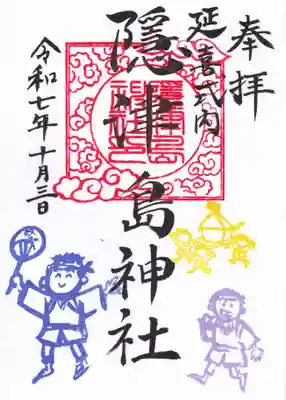 奉拝
延喜式内
隠津島神社
令和七年十月三日